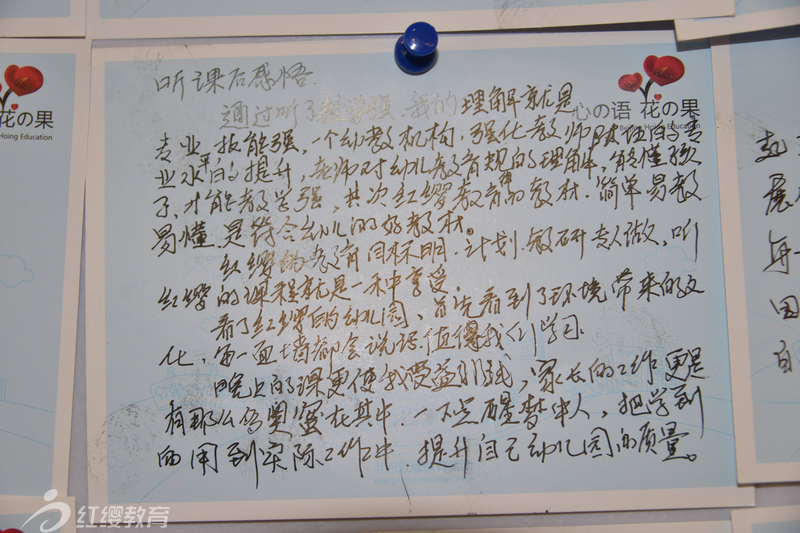 听课后感悟
通过听了教学强，我的理解就是
心の语 花の果
Hoing Education
专业，技能强，一个幼教机构，强化教师队伍的专
业水平的提升，老师对幼儿教育规的理解，能懂孩
子，才能教学强，其次红缨教育的教材，简单易教
易懂，是符合幼儿的好教材。
红缨的教育目标明，计划、教研专人做，听
红缨的课程就是一种享受
看了红缨的幼儿园，首先看到了环境带来的文
化，每一面墙都会说话，值得我们学习
晚上的课更使我受益匪浅，家长的工作更是
有那么多奥蜜在其中，一下点醒梦中人，把学到
的用到实际工作中，提升自己幼儿园的质量。
花の果
Hoing Education
展
每
园
自
红缨教育